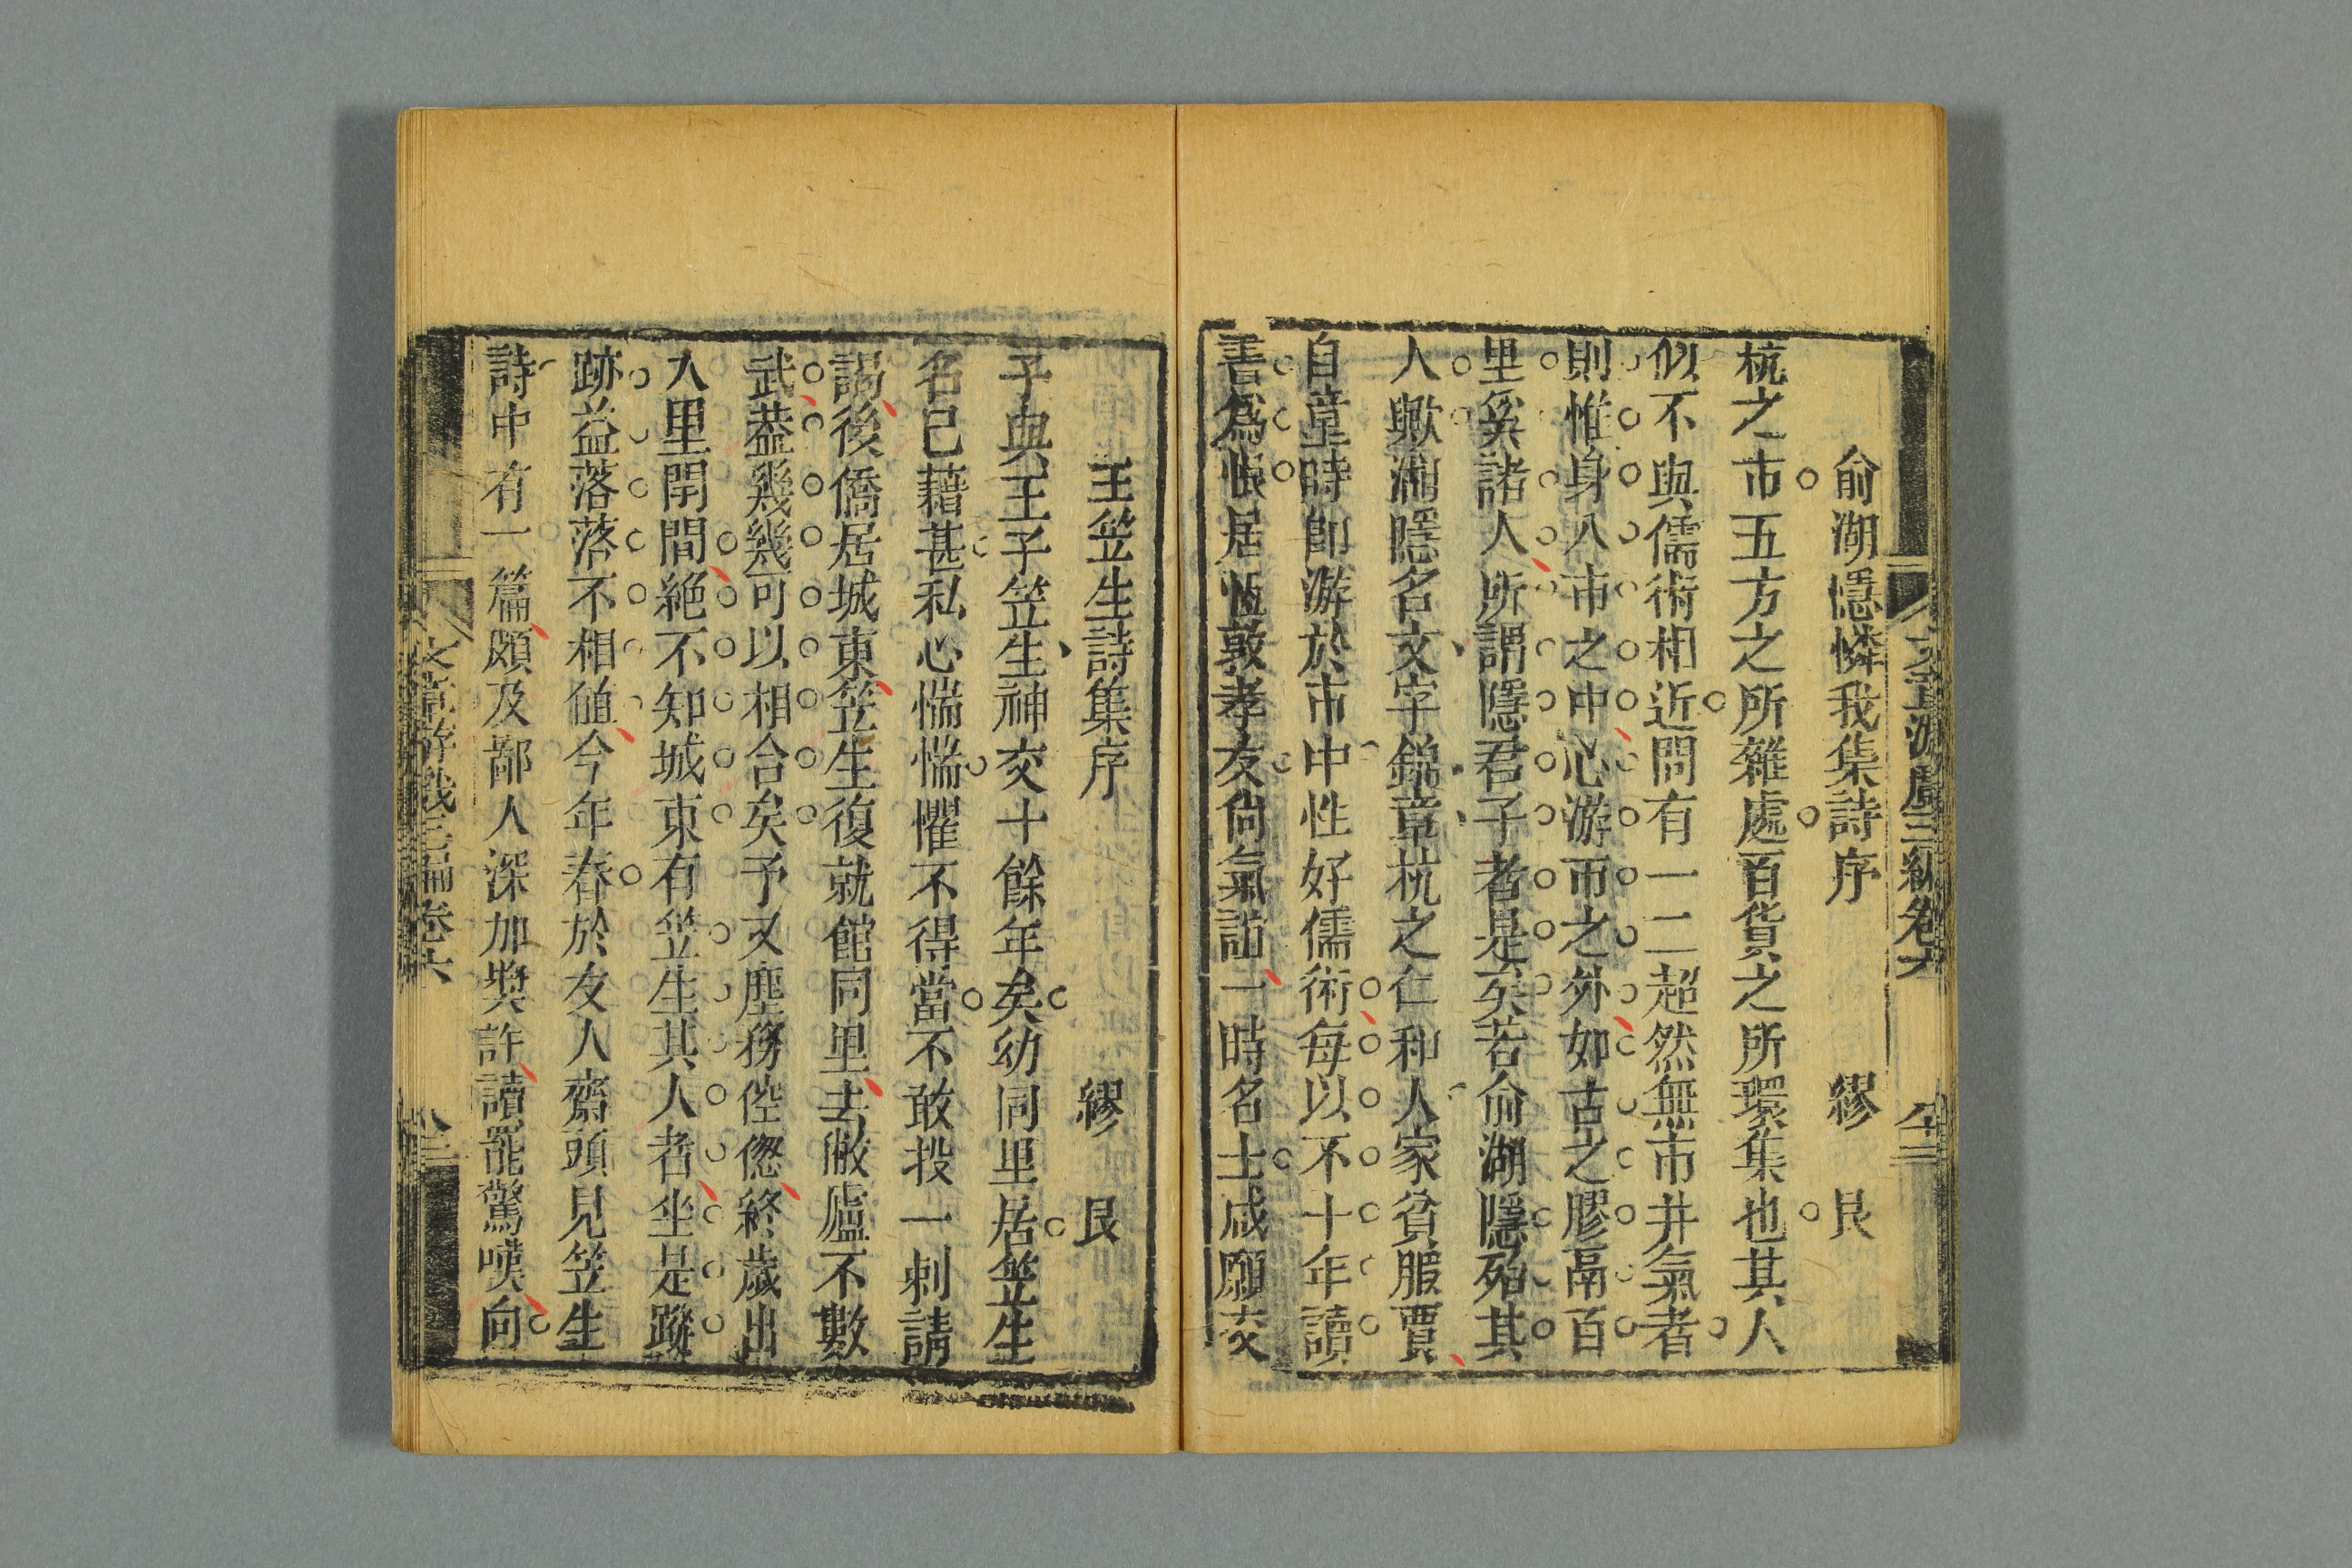 俞湖隱憐我集詩序 繆艮
杭之市五方之所雜處百貨之所環集也其人
似不與儒術相近間有一二超然無市井氣者
則惟身入市之中心游市之外如古之膠鬲百
里奚諸人所謂隱君子者是矣若俞湖隱殆其
人歟湖隱名文字錦章杭之仁和人家貧服賈
自童時卽游於市中性好儒術每以不十年讀
書爲恨居恆敦孝友尙氣誼一時名士咸願交
王笠生詩集序 繆艮
予與王子笠生神交十餘年矣幼同里居笠生
名已藉甚私心惴惴懼不得當不敢投一刺請
謁後僑居城東笠生復就館同里去敝廬不數
武葢幾幾可以相合矣予又塵務倥傯終歲出
入里閈間絶不知城東有笠生其人者坐是蹤
跡益落落不相値今年春於友人齋頭見笠生
詩中有一篇頗及鄙人深加獎許讀罷驚嘆向
文章游戲三編卷六